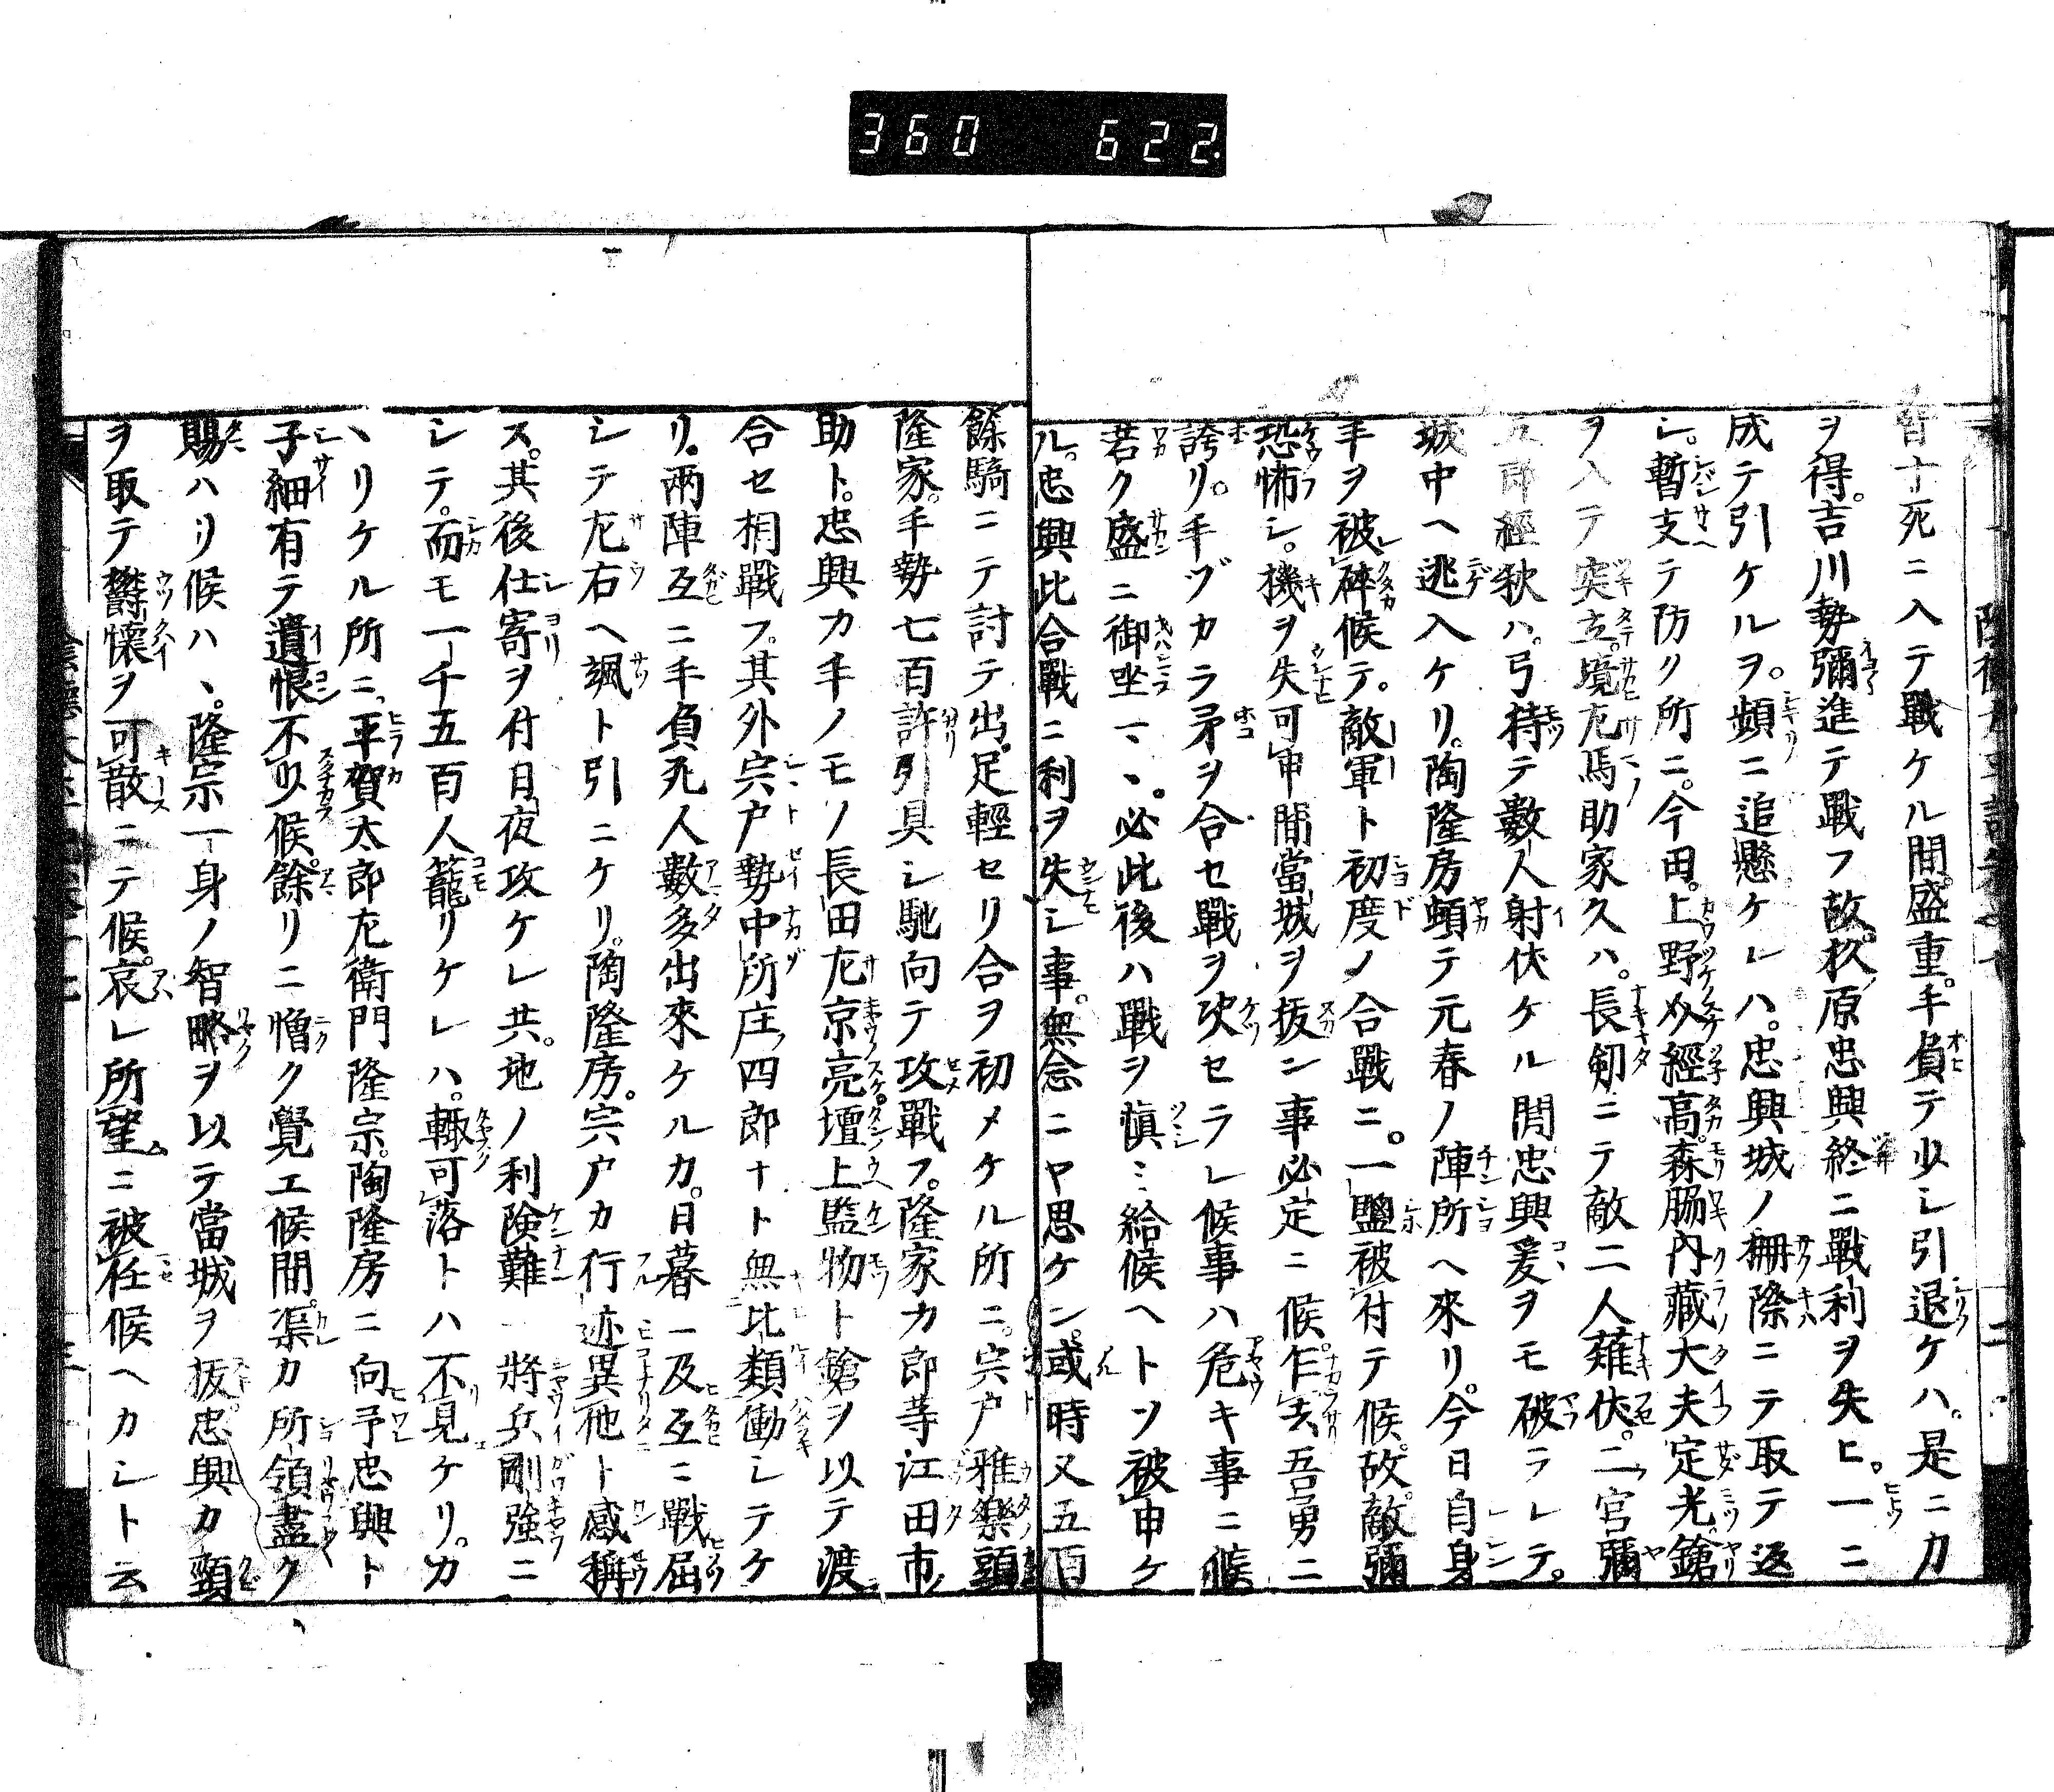 360 622.
皆十死ニ入テ戰ケル間。盛重。手負テ少シ引退ケハ。是ニカ
ヲ得。吉川勢彌進テ戰フ故。杉原忠興終ニ戰利ヲ失ヒ。一ニ
成テ引ケルヲ。頻ニ追懸ケレハ。忠興城ノ柵際ニテ取テ返
シ。暫支テ防ク所ニ。今田。上野介經高。森脇内藏大夫定光鎗
ヲ入テ突立。境左馬助家久ハ。長刎ニテ敵二人薙伏。二宮彌
五郎經狄ハ。弓持テ數人射伏ケル間忠興爰ヲモ破ラレテ。
城中ヘ逃入ケリ。陶隆房頓テ元春ノ陣所ヘ來リ。今日自身
手ヲ被碎候テ。敵軍ト初度ノ合戰ニ。一鹽被付テ候。故敵彌
恐怖シ。機ヲ失可申間當城ヲ抜ン事必定ニ候。乍去吾勇ニ
誇リ。手ヅカラ矛ヲ合セ戰ヲ决セラレ候事ハ危キ事ニ候
若ク盛ニ御坐一、。必此後ハ戰ヲ愼ミ給候ヘトソ被申ケ
ル。忠興此合戰ニ利ヲ失シ事。無念ニヤ思ケン。或時又五百
餘騎ニテ討テ出。足輕セリ合ヲ初メケル所ニ。宍戸雅樂頭
隆家。手勢七百許引具シ馳向テ攻戰フ。隆家カ郎等江田市
助ト。忠興カ手ノモノ長田左京亮。壇上監物ト鎗ヲ以テ渡
合セ相戰フ。其外宍戸勢中所庄四郎ナト無比類働シテケ
リ。兩陣互ニ手負死人數多出來ケルカ。日暮ニ及互ニ戰屈
シテ左右ヘ颯ト引ニケリ。陶隆房。宍戸カ行迹異他ト感稱
ス。其後仕寄ヲ付日夜攻ケレ共。地ノ利險難ニ將兵剛強ニ
シテ。而モ一千五百人籠リケレハ。輙可落トハ不見ケリ。カ
ヽリケル所ニ、平賀太郎左衛門隆宗。陶隆房ニ向予忠興ト
子細有テ遺恨不少候。餘リニ憎ク覺エ候間。渠カ所領盡ク
賜ハリ候ハヽ。隆宗一身ノ智略ヲ以テ當城ヲ抜忠興カ頸
ヲ取テ欝懷ヲ可散ニテ候。哀レ所望ニ被任候ヘカシト云